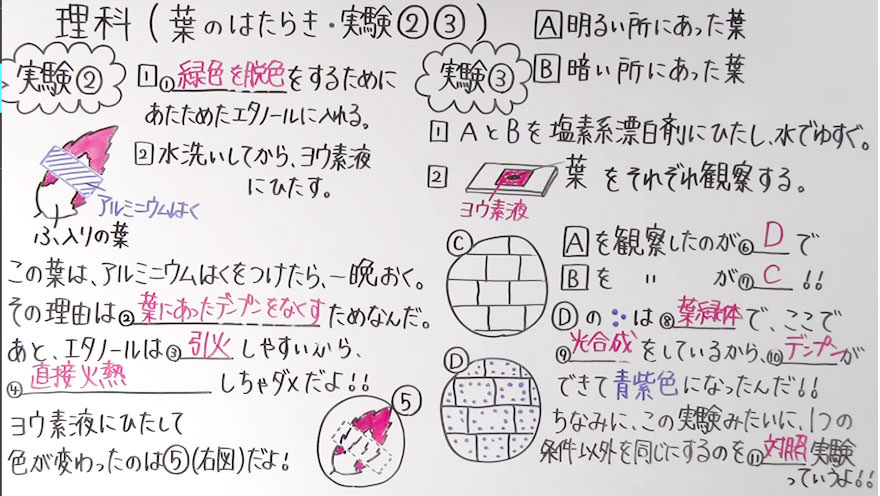 理科(葉のはたらき・実験②③)
実験②
1 ①緑色を脱色をするために
あたためたエタノールに入れる。
2 水洗いしてから、ヨウ素液
にひたす。
アルミニウムはく
ふ入りの葉
この葉は、アルミニウムはくをつけたら、一晩おく。
その理由は②葉にあったデンプンをなくすためなんだ。
あと、エタノールは③引火しやすいから、
④直接火熱しちゃダメだよ!!
ヨウ素液にひたして
色が変わったのは⑤(右図)だよ!
⑤
A 明るい所にあった葉
B 暗い所にあった葉
実験③
1 AとBを塩素系漂白剤にひたし、水でゆすぐ。
2 葉をそれぞれ観察する。
ヨウ素液
C
A を観察したのが⑥Dで
B を 〃 が⑦C!!
Dの は⑧葉緑体で、ここで
⑨光合成をしているから、⑩デンプンが
D
できて青紫色になったんだ!!
ちなみに、この実験みたいに、1つの
条件以外を同じにするのを⑪対照実験
っていうよ!!